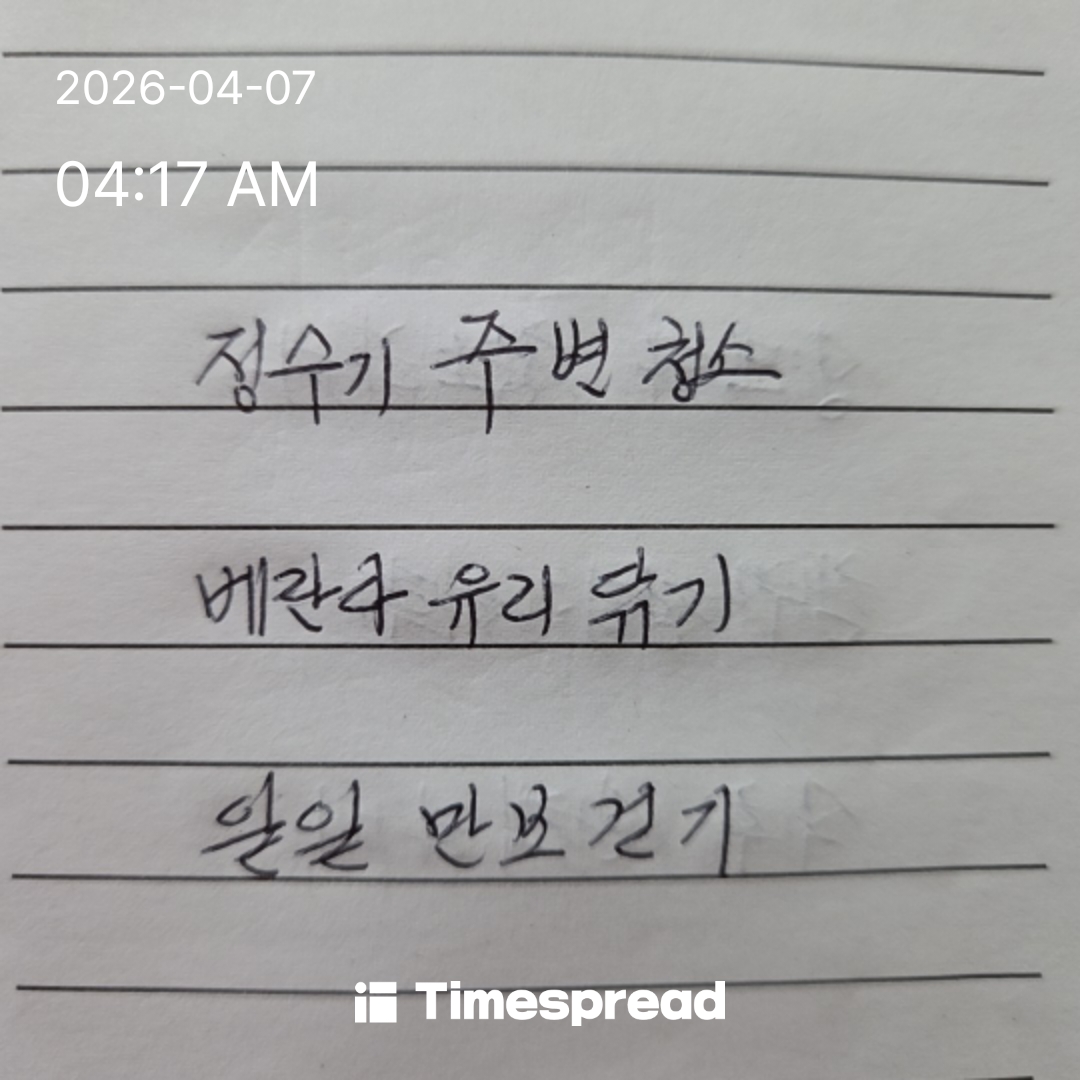 2026-04-07
04:17 AM
정수기 주변 청소
베란다 유리 닦기
일일 만보 걷기
Timespread